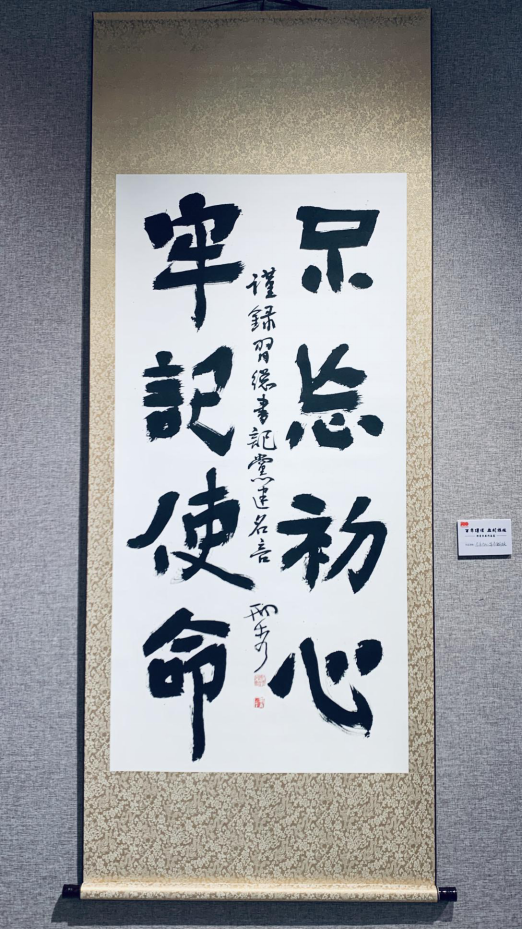 不忘初心
牢記使命
謹録習總書記黨建名言